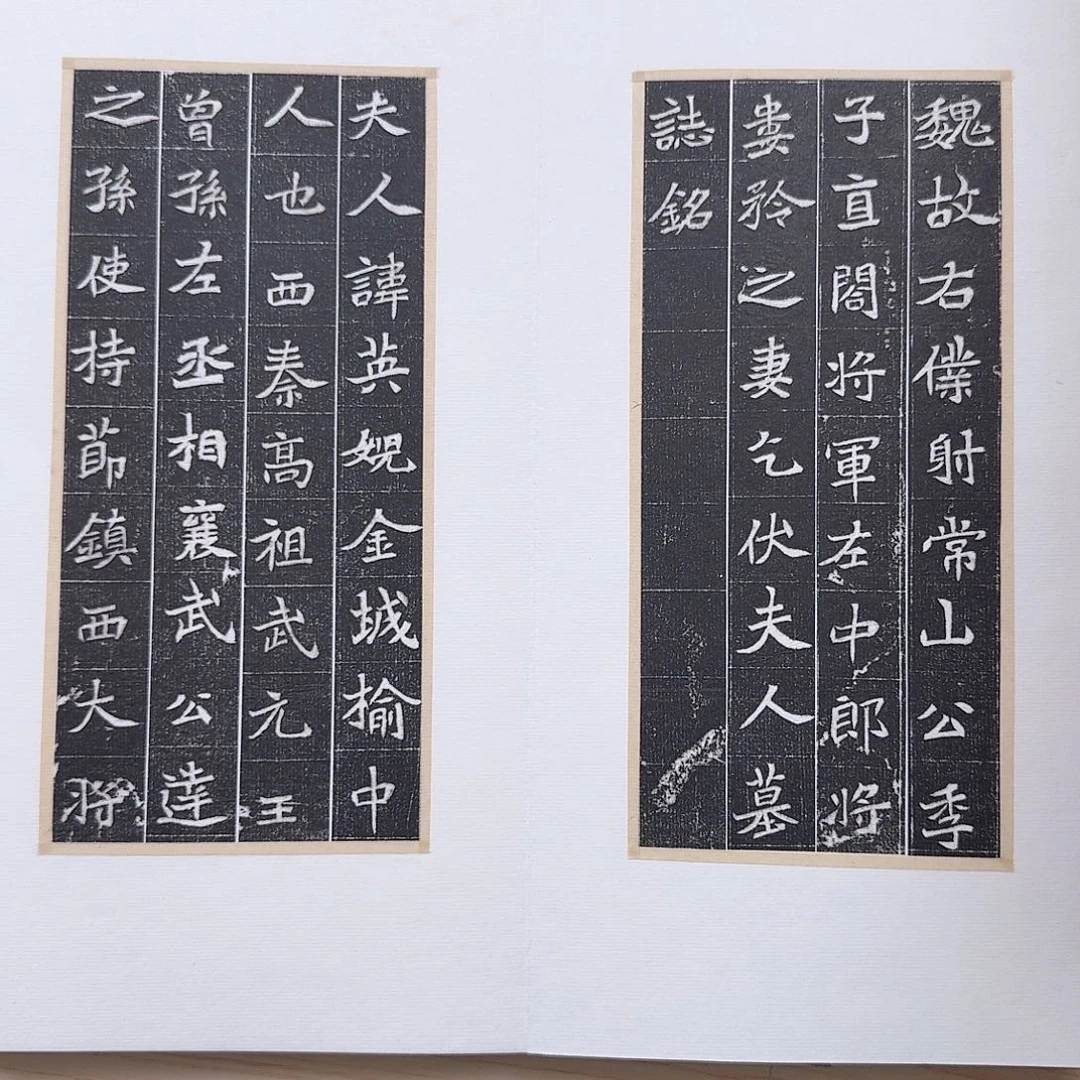 魏故右僕射常山公季
子直閤将軍左中郎将
婁矜之妻乞伏夫人墓
誌銘
夫人諱英娧金城揄中
人也西秦高祖武元王
曾孫左丞相襄武公達
之孫使持莭鎮西大将